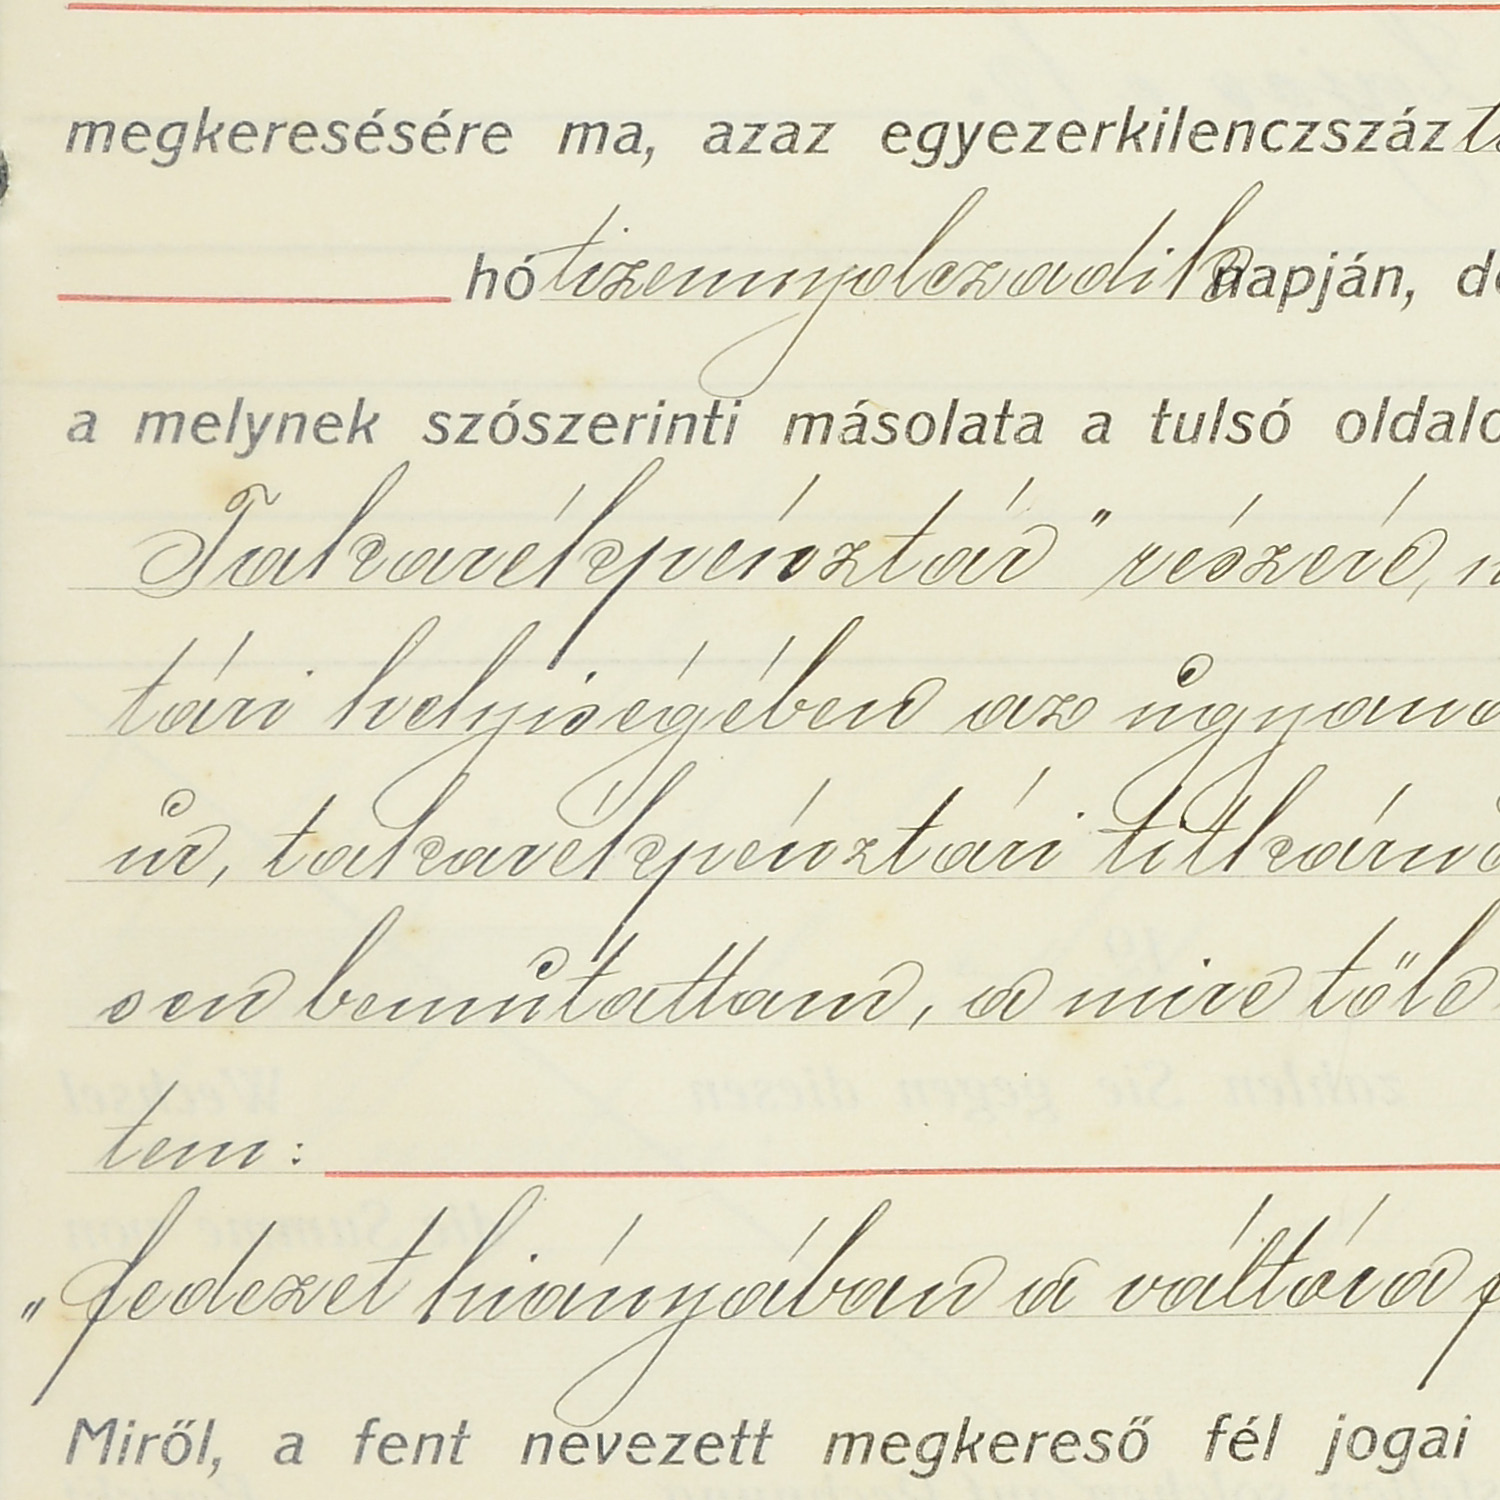 megkeresésére ma, azaz egyezerkilenczszáz
hó tizennyolczadik napján,
a melynek szószerinti másolata a tulsó
Takarékpénztár" részére,
tári helyiségében az
úr, takarékpénztári
sen bemutattam, a mire tőle
tem:
„fedezet hiányában a váltóra
Miről, a fent nevezett megkereső fél jogai